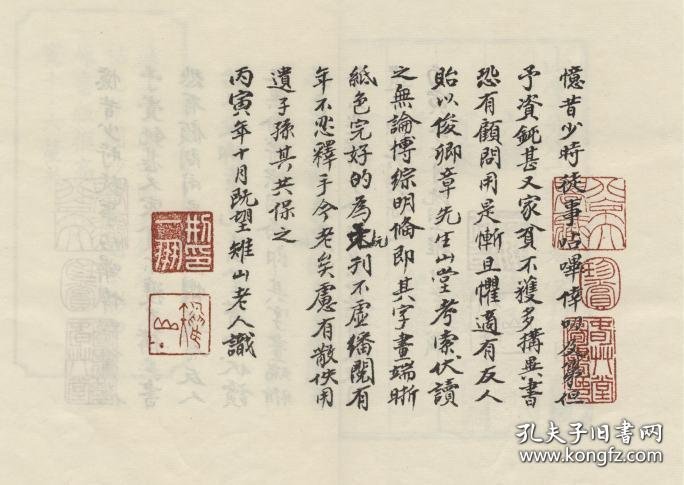 憶昔少時從事呫嗶傳
但
予資鈍甚又家貧不獲多搆異書
恐有顧問用是慚且懼適有友人
貽以俊卿章先生山堂考索伏讀
之無論博綜明備即其字畫端晰
紙色完好的為元刊不虛繙閱有
年不忍釋手今老矣慮有散佚用
遺子孫其共保之
丙寅年十月既望雉山老人識
珍賞
孔夫子旧书网
www.kongfz.com